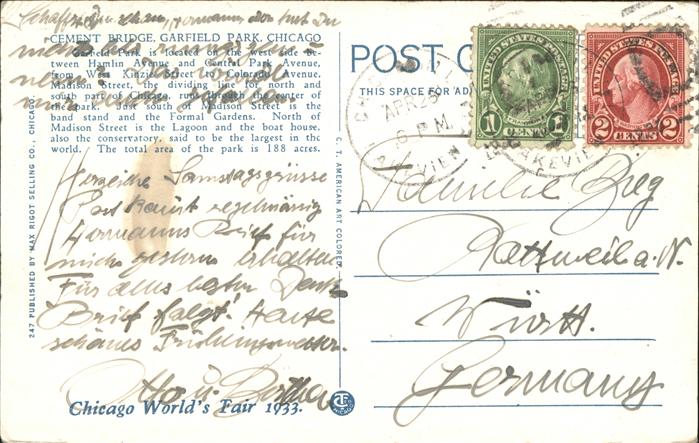 CEMENT BRIDGE, GARFIELD PARK, CHICAGO
Garfield Park is located on the west side be-
tween Hamlin Avenue and Central Park Avenue,
from West Kinzie Street to Colorado Avenue.
Madison Street, the dividing line for north and
south part of Chicago, runs through the center of
the park. Just south of Madison Street is the
band stand and the Formal Gardens. North of
Madison Street is the Lagoon and the boat house,
also the conservatory, said to be the largest in the
world. The total area of the park is 188 acres.
Herzliche Samstagsgrüsse
Post kommt regelmässig
Hermanns Brief für
mich gestern erhalten
Für alles besten Dank
Brief folgt! Heute
schönes Frühlingswetter.
Otto u. Bertha
Chicago World's Fair 1933.
247 PUBLISHED BY MAX RIGOT SELLING CO., CHICAGO
C. T. AMERICAN ART COLORED
POST C
THIS SPACE FOR AD
APR 28
6 PM
LAKEVIEW
UNITED STATES POSTAGE
1 CENT 1
UNITED STATES POSTAGE
2 CENTS 2
Familie Breg
Rottweil a. N.
Württ.
Germany